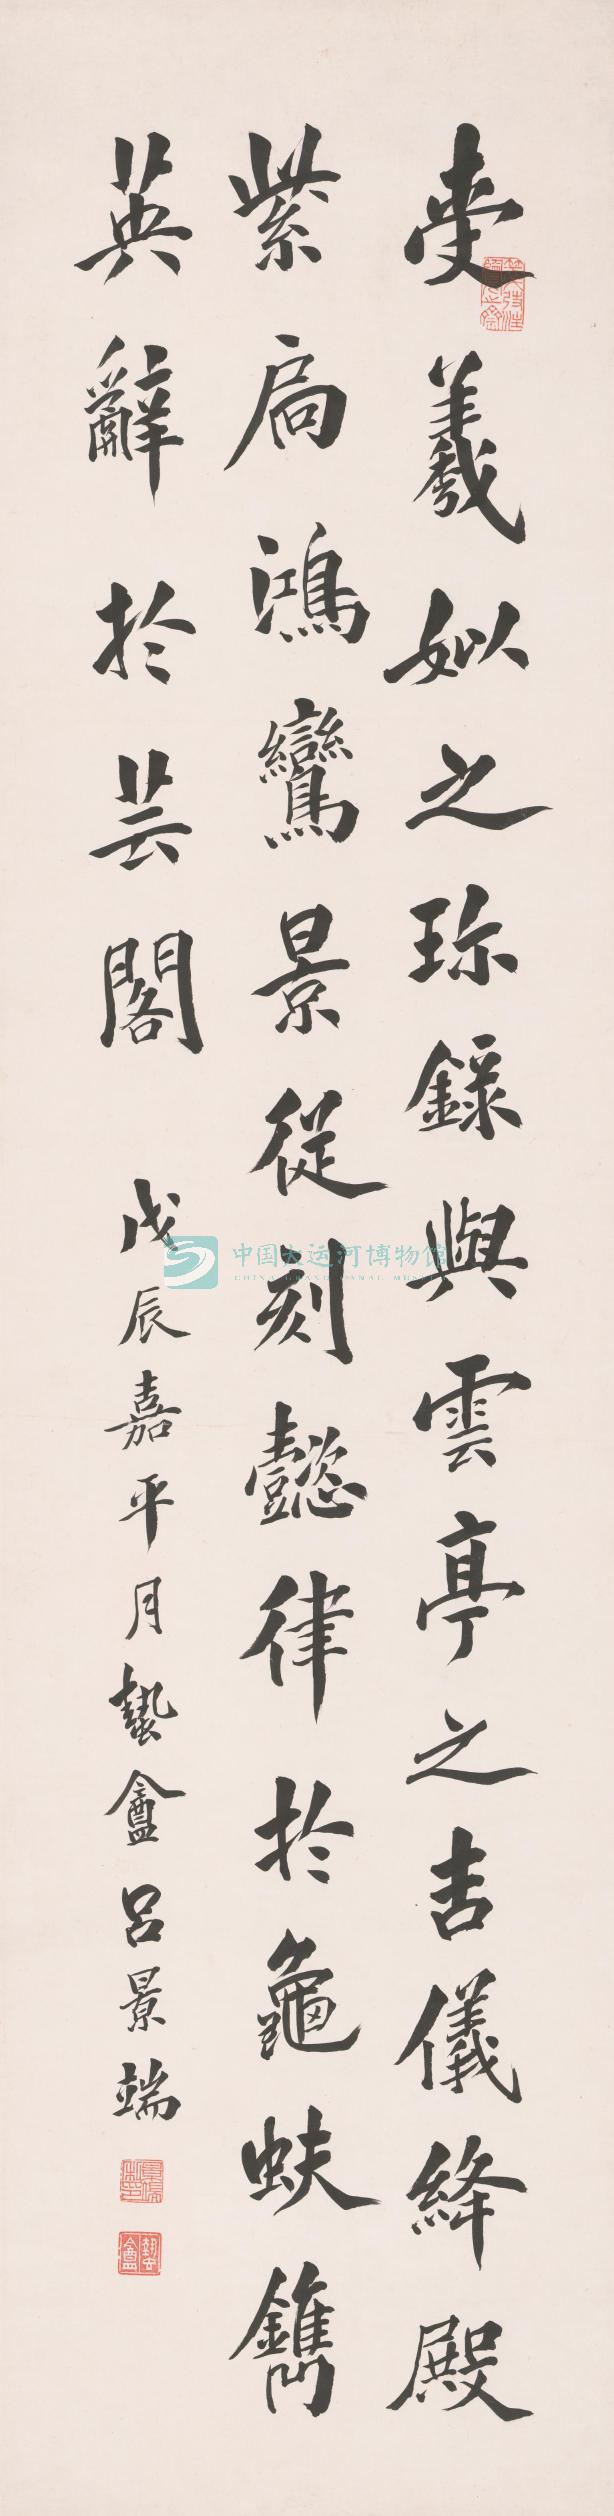 受羲姒之珎録與雲亭之吉儀絳殿
紫扃鴻鸞景從刻懿律於龜蚨鐫
英辭於芸閣
戊辰嘉平月蟄盦呂景端
蟄盦
中国大运河博物馆
CHINA GRAND CANAL MUSEUM